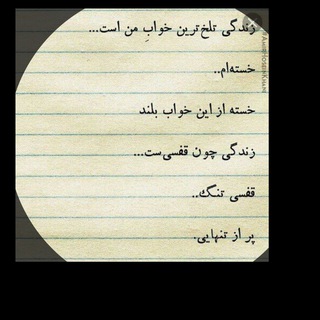 زندگی تلخ‌ترین خوابِ من است...
خسته‌ام..
خسته از این خواب بلند
زندگی چون قفسی‌ست...
قفسی تنگ..
پر از تنهایی.